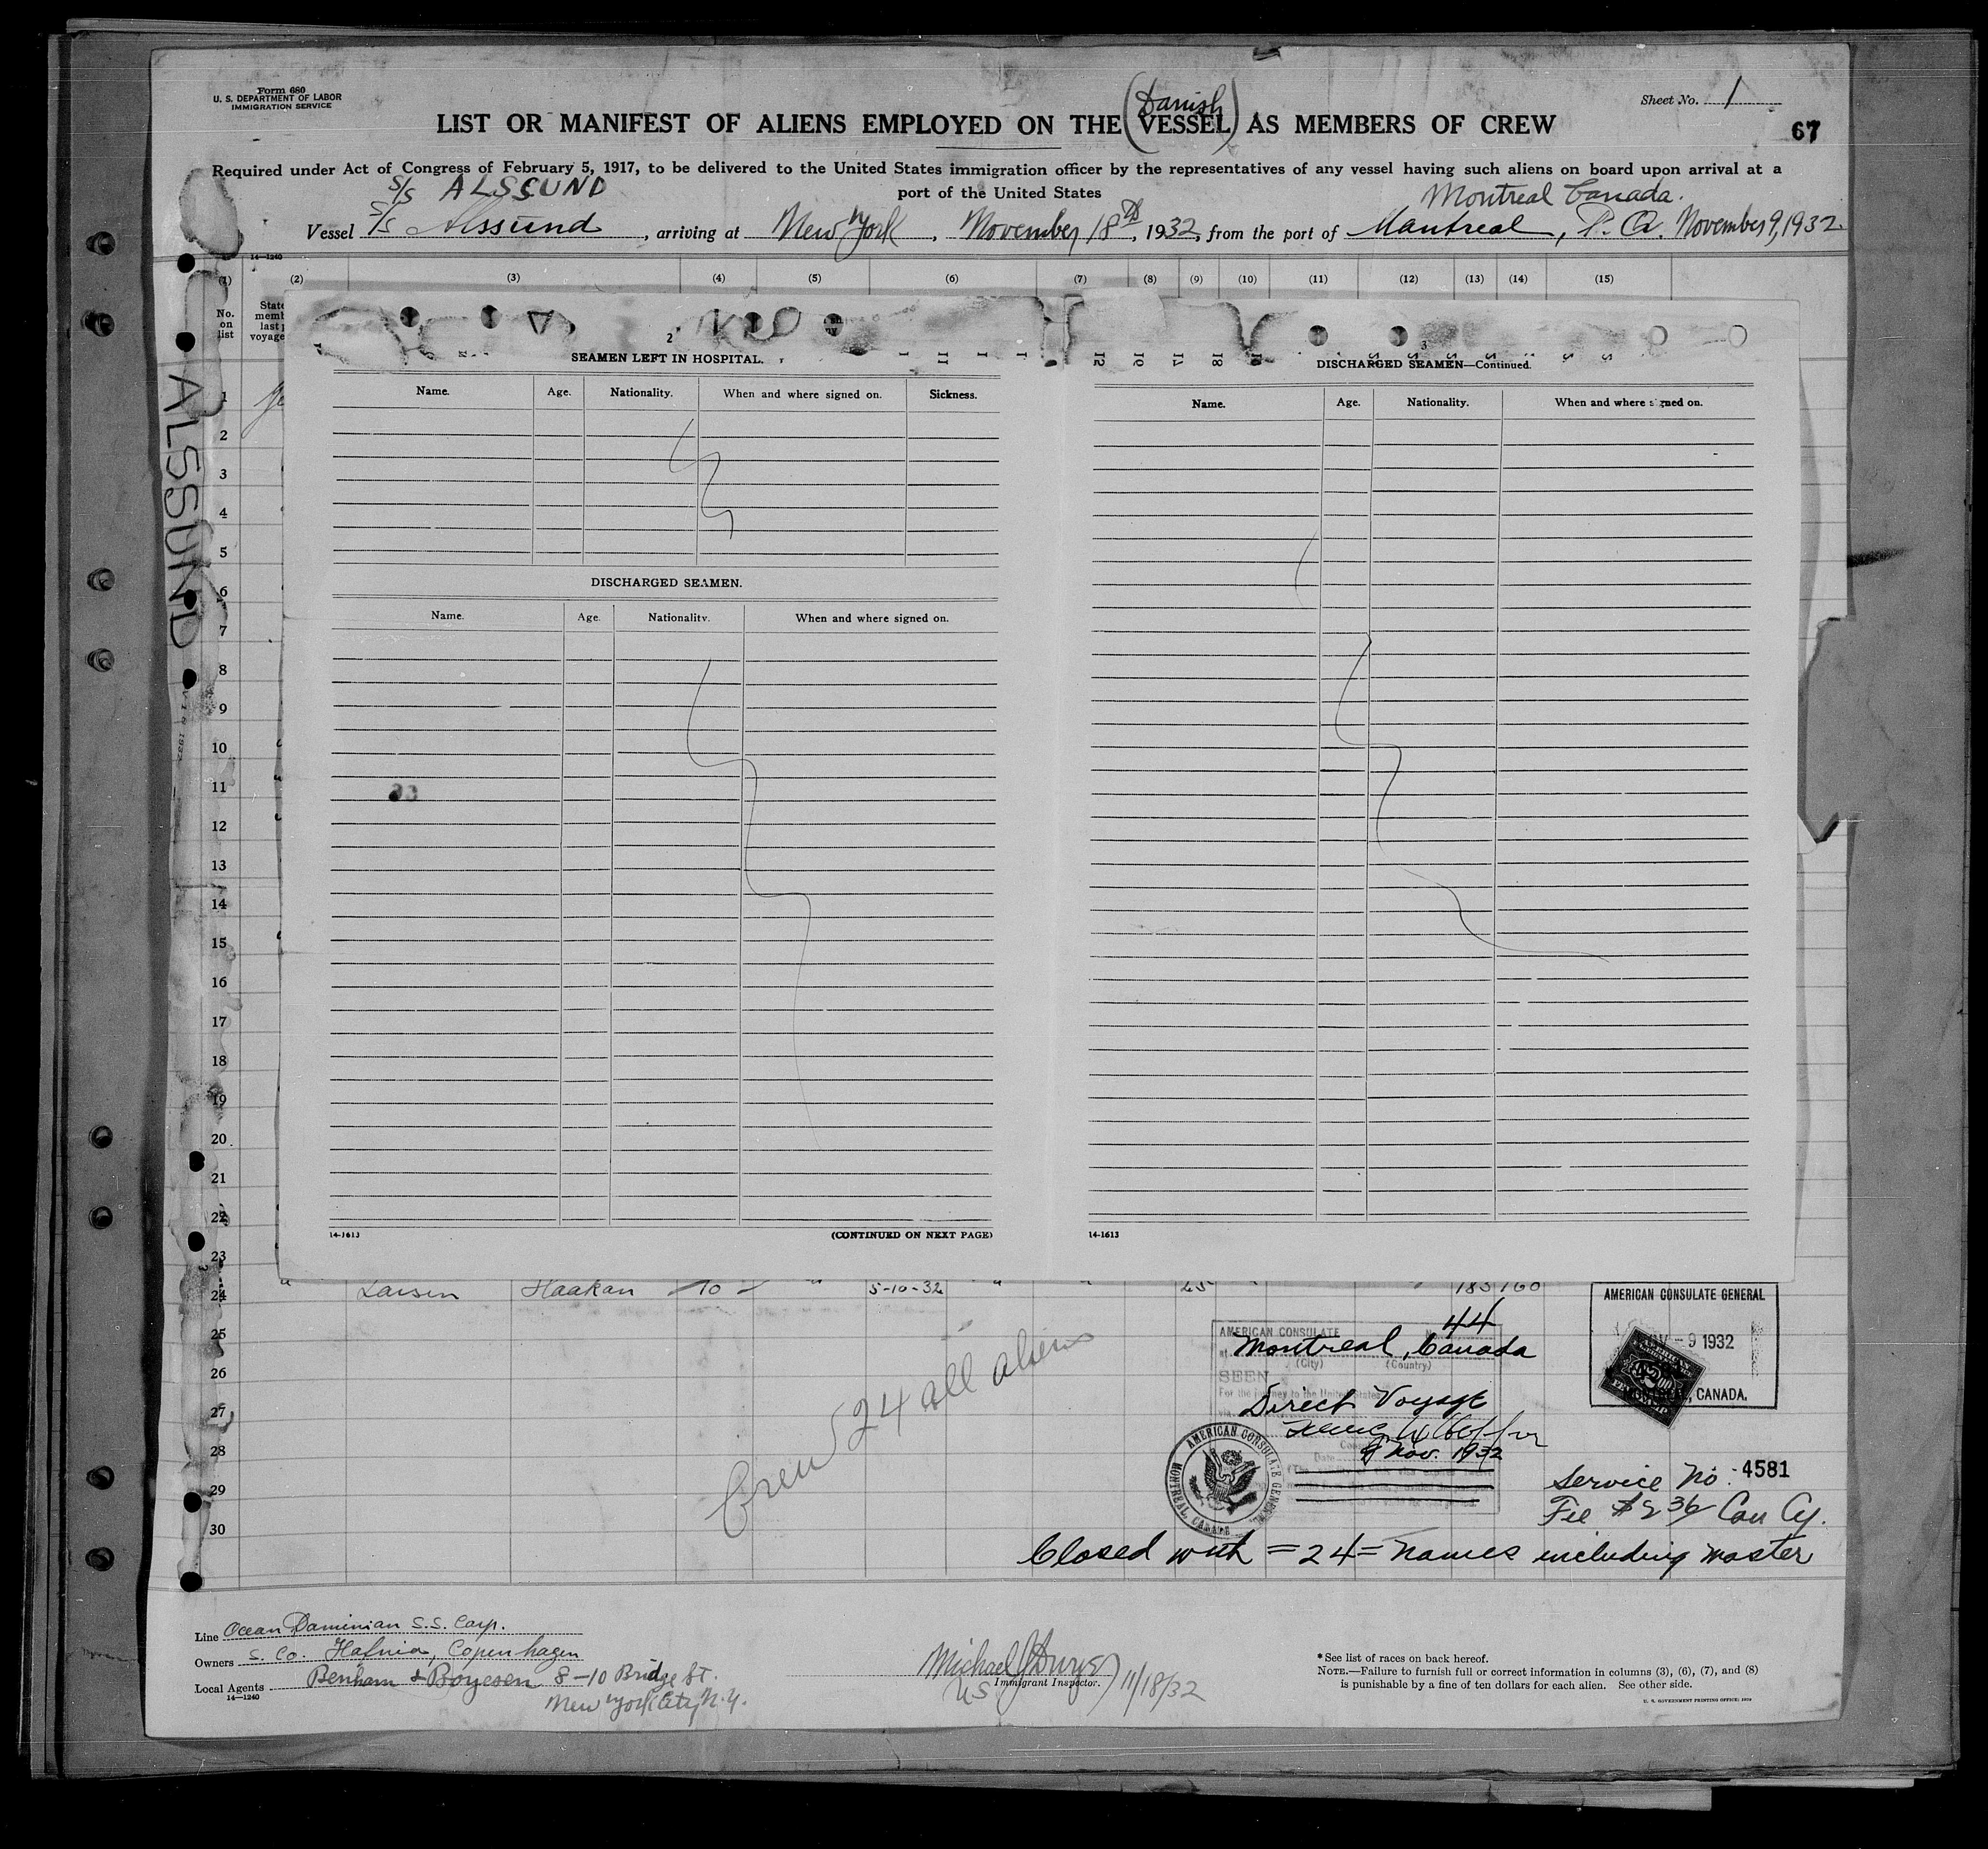 Form 680
U. S. DEPARTMENT OF LABOR
IMMIGRATION SERVICE
Sheet No. 1
67
(Danish)
LIST OR MANIFEST OF ALIENS EMPLOYED ON THE VESSEL AS MEMBERS OF CREW
Required under Act of Congress of February 5, 1917, to be delivered to the United States immigration officer by the representatives of any vessel having such aliens on board upon arrival at a
port of the United States
S/S ALSSUND
Montreal Canada.
Vessel S/S Alssund, arriving at New York, November 18th, 1932, from the port of Montreal, P. Q. November 9, 1932.
14-1240
(1) (2) (3) (4) (5) (6) (7) (8) (9) (10) (11) (12) (13) (14) (15)
No.
on
list
ALSSUND
2
SEAMEN LEFT IN HOSPITAL.
Name. Age. Nationality. When and where signed on. Sickness.
DISCHARGED SEAMEN.
Name. Age. Nationality. When and where signed on.
14-1613
(CONTINUED ON NEXT PAGE)
3
DISCHARGED SEAMEN—Continued.
Name. Age. Nationality. When and where signed on.
14-1613
1
2
3
4
5
6
7
8
9
10
11
12
13
14
15
16
17
18
19
20
21
22
23
24 Larsen Haakan 5-10-32 25 183 160
25
26
27
28
29
30
Crew 24 all aliens
44
AMERICAN CONSULATE
Montreal, Canada
(City) (Country)
SEEN
For the journey to the United States
Direct Voyage
9 Nov. 1932
AMERICAN CONSULATE GENERAL
MONTREAL, CANADA
AMERICAN CONSULATE GENERAL
NOV - 9 1932
MONTREAL, CANADA.
Service No. 4581
Fee $2 36 Can Cy.
Closed with =24= names including master
Line Ocean Dominion S.S. Corp.
Owners S. Co. Hafnia, Copenhagen
Local Agents Benham & Boyesen 8-10 Bridge St.
14-1240
New York City N.Y.
Michael J Dwyer 11/18/32
US Immigrant Inspector.
* See list of races on back hereof.
NOTE.—Failure to furnish full or correct information in columns (3), (6), (7), and (8)
is punishable by a fine of ten dollars for each alien. See other side.